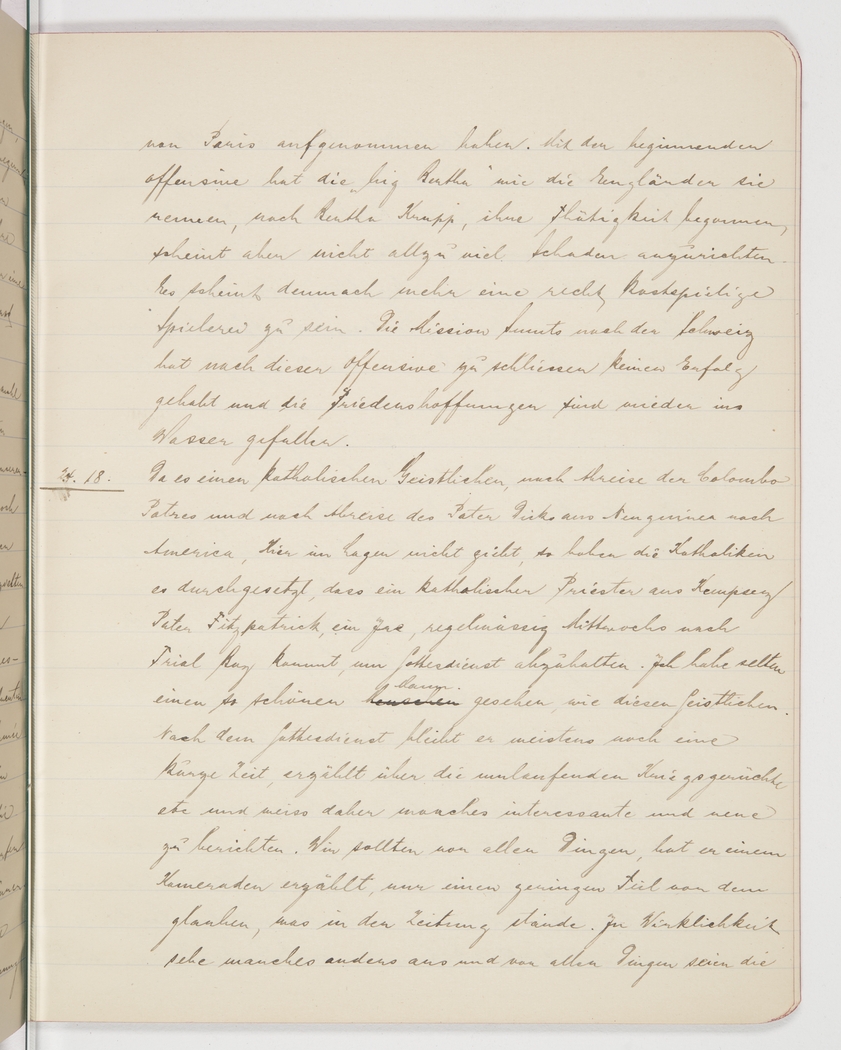 von Paris aufgenommen haben. Mit der beginnenden
offensive hat die „big Bertha" wie die Engländer sie
nennen, nach Bertha Krupp, ihre thätigkeit begonnen,
scheint aber nicht allzu viel Schaden anzurichten.
Es scheint demnach mehr eine recht kostspielige
Spielerei zu sein. Die Mission Smuts nach der Schweiz
hat nach dieser offensive zu schliessen keinen Erfolg
gehabt und die Friedenshoffnungen sind wieder ins
Wasser gefallen.
24. 18. Da es einen katholischen Geistlichen, nach Abreise der Colombo
Patres und nach Abreise des Pater Dirks aus Neuguinea nach
America, Hier im Lager nicht giebt, so haben die Katholiken
es durchgesetzt, dass ein katholischer Priester aus Kempsey
Pater Fitzpatrick, ein Ire, regelmässig Mittwochs nach
Trial Bay kommt, um Gottesdienst abzuhalten. Ich habe selten
einen so schönen Mann gesehen, wie diesen Geistlichen.
Nach dem Gottesdienst bleibt er meistens noch eine
kurze Zeit, erzählt über die umlaufenden Kriegsgerüchte
etc und weiss daher manches interessante und neue
zu berichten. Wir sollten vor allen Dingen, hat er einem
Kameraden erzählt, nur einen geringen Teil von dem
glauben, was in der Zeitung stände. In Wirklichkeit
sehe manches anders aus und vor allen Dingen seien die